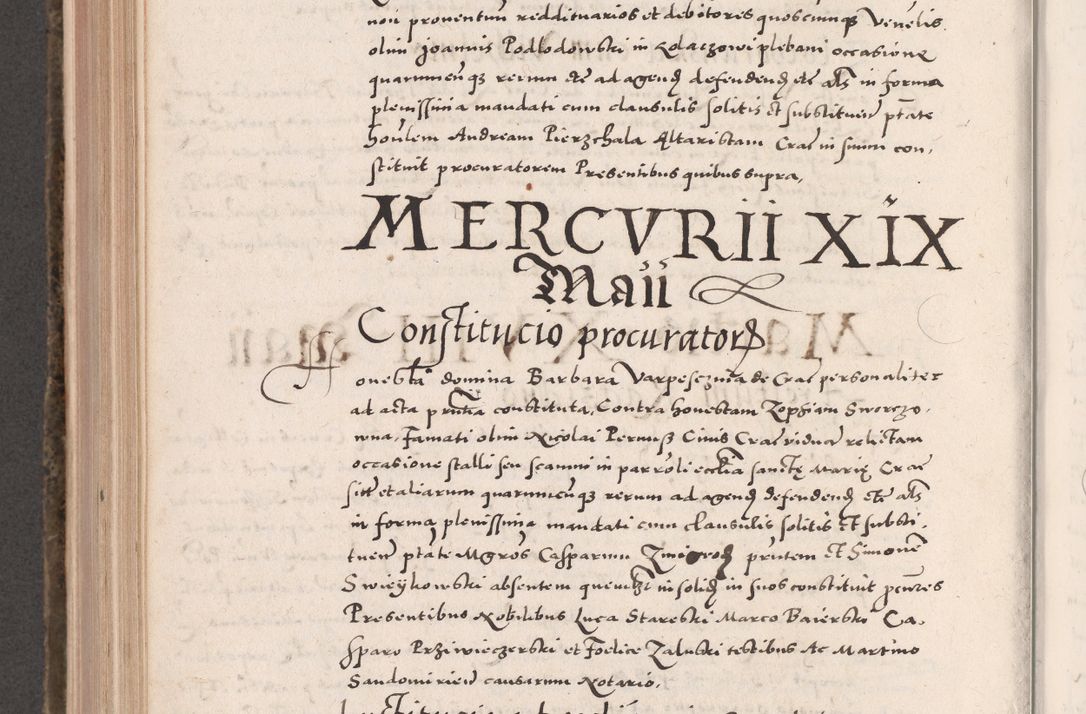 non proventum reddituarios et debitores quoscumque Venelis
olim Joannis Podlodowski in Kolaczowi plebani occasione
quarumcunqz rerum etc ad agend defendend etc als in forma
plenissima mandati cum clausulis solitis et substituen ptate
honlem Andream Pierzchala Altaristam Crac in suum con,
stituit procuratorem Presentibus quibus supra,
MERCVRII XIX
Maii
Constitucio procurator
Honesta domina Barbara Varpesczina de Crac personaliter
ad acta prntia constituta, Contra honestam Zophiam Sworczo,
wna, Famati olim Nicolai Pernusz Civis Crac viduam relictam
occasione stalli seu scamni in parroli ecclia sanctę Marię Crac
sitt et aliarum quarumcunqz rerum ad agend defendend etc als
in forma plenissima mandati cum clausulis solitis et substi,
tuen ptate Mgros Casparum Zmigrod prntem et Simonem
Swieykowski absentem quemlibet in solid in suos constituit pcures
Presentibus Nobilibus Luca Stareski Marco Baierski Ca,
sparo Prziwieczerski et Foelice Zaluski testibus Ac Martino
Sandomirien causarum Notario,